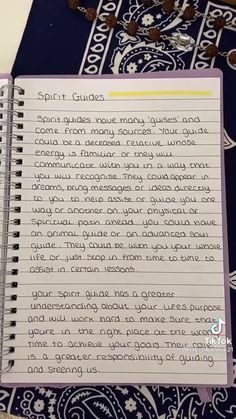 Spirit Guides
Spirit guides have many 'guises' and
come from many sources. Your guide
could be a deceased relative whose
energy is familiar or they will
communicate with you in a way that
you will recognise. They could appear in
dreams, bring messages or ideas directly
to you to help assist or guide you one
way or another on your physical or
spiritual path ahead. you could have
an animal guide or an advanced soul
guide. They could be with you your whole
life or just stop in from time to time to
assist in certain lessons.
your spirit guide has a greater
understanding about your lifes purpose
and will work hard to make sure that
you're in the right place at the
time to achieve your goals. Their
is a greater responsibility of guiding
and steering us.
TikTok